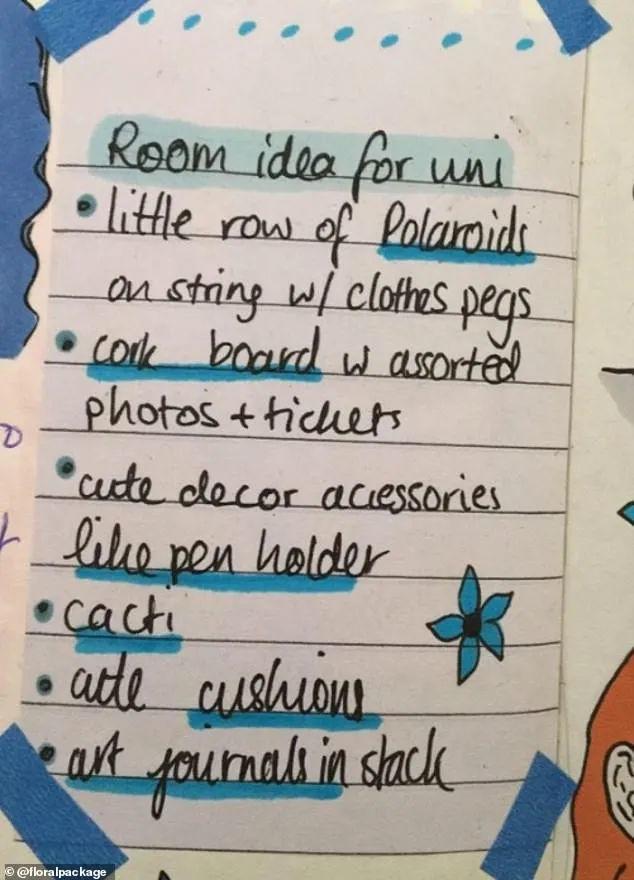 Room idea for uni
• little row of Polaroids
on string w/ clothes pegs
• cork board w assorted
photos + tickets
• cute decor accessories
like pen holder
• cacti
• cute cushions
• art journals in stack
© @floralpackage